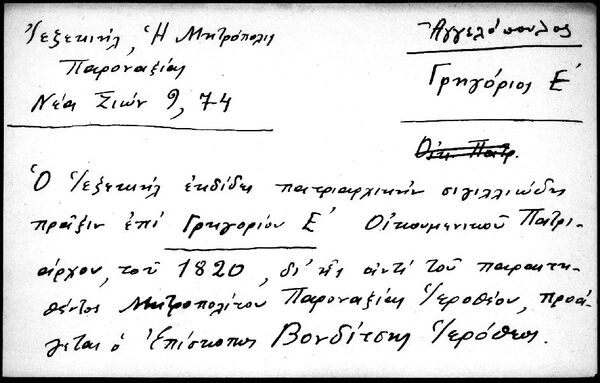 Ἰεζεκιήλ, Ἡ Μητρόπολις
Παροναξίας
Νέα Σιών 9, 74
Ἀγγελόπουλος
Γρηγόριος Ε΄
Οἰκ. Πατρ.
Ὁ Ἰεζεκιήλ ἐκδίδει πατριαρχικήν σιγιλλιώδη
πρᾶξιν ἐπί Γρηγορίου Ε΄ Οἰκουμενικοῦ Πατρι-
άρχου, τοῦ 1820, δι' ἧς ἀντί τοῦ παραιτη-
θέντος Μητροπολίτου Παροναξίας Ἱεροθέου, προά-
γεται ὁ Ἐπίσκοπος Βονδίτσης Ἱερόθεος.